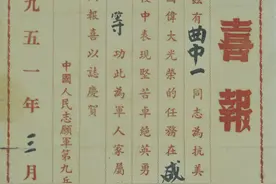 喜報
茲有曲中一同志為抗美
國偉大光榮的任務在咸
役中表現堅苦卓絶英勇
等功此為軍人家屬
報喜以誌慶賀
中國人民志願軍第九兵
九五一年三月